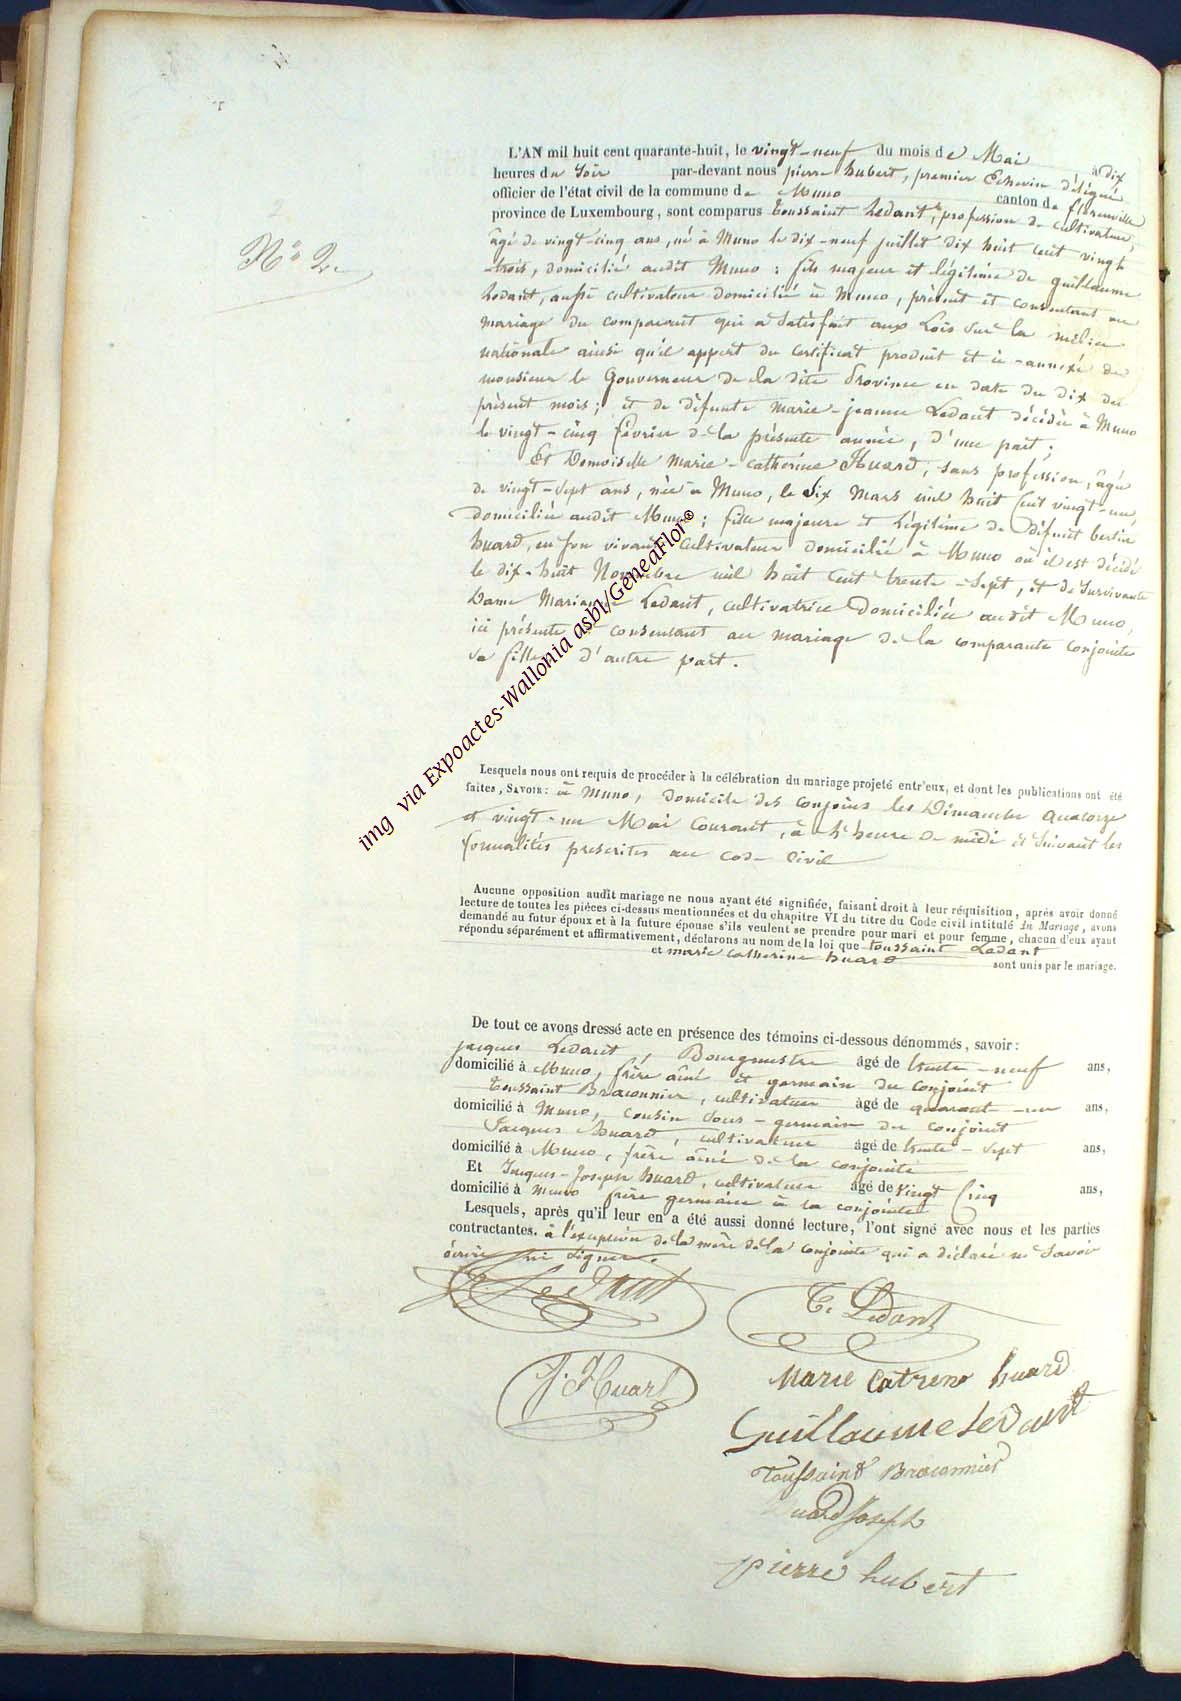 N° 2.
L'AN mil huit cent quarante-huit, le vingt-neuf du mois de Mai à dix
heures du Soir par-devant nous pierre hubert, premier Echevin délégué
officier de l'état civil de la commune de Muno canton de florenville
province de Luxembourg, sont comparus toussaint Ledant, profession de cultivateur,
âgé de vingt-cinq ans, né à Muno le dix-neuf juillet dix huit cent vingt
-trois, domicilié audit Muno : fils majeur et légitime de guillaume
Ledant, aussi cultivateur domicilié à Muno, présent et consentant au
mariage du comparant qui a Satisfait aux Lois sur la milice
nationale ainsi qu'il appert du certificat produit et ci-annexé de
monsieur le Gouverneur de la dite Province en date du dix du
présent mois; et de défunte marie-jeanne Ledant décédée à Muno
le vingt-cinq février de la présente année, d'une part;
Et Demoiselle marie-catherine Huard, sans profession, âgée
de vingt-sept ans, née à Muno, le Six Mars mil huit Cent vingt-un,
domiciliée audit Muno; fille majeure et légitime de défunt bertin
huard, en son vivant cultivateur domicilié à Muno où il est décédé
le dix-huit Novembre mil huit cent trente-Sept, et de Survivante
Dame Marianne Ledant, cultivatrice domiciliée audit Muno,
ici présente et consentant au mariage de la comparante conjointe
sa fille, d'autre part.
Lesquels nous ont requis de procéder à la célébration du mariage projeté entr'eux, et dont les publications ont été
faites, SAVOIR : à Muno, domicile des conjoins les Dimanche quatorze
et vingt-un Mai Courant, à l'heure de midi et Suivant les
formalités prescrites au code Civil
Aucune opposition audit mariage ne nous ayant été signifiée, faisant droit à leur réquisition, après avoir donné
lecture de toutes les pièces ci-dessus mentionnées et du chapitre VI du titre du Code civil intitulé du Mariage, avons
demandé au futur époux et à la future épouse s'ils veulent se prendre pour mari et pour femme, chacun d'eux ayant
répondu séparément et affirmativement, déclarons au nom de la loi que toussaint Ledant
et marie catherine huard sont unis par le mariage.
De tout ce avons dressé acte en présence des témoins ci-dessous dénommés, savoir :
jacques Ledant Bourgmestre âgé de trente-neuf ans,
domicilié à Muno, frère aîné et germain du conjoint
Toussaint Braconnier, cultivateur âgé de quarante-un ans,
domicilié à Muno, cousin Sous-germain du conjoint
Jacques Huard, cultivateur âgé de trente-sept ans,
domicilié à Muno, frère aîné de la conjointe
Et Jacques-Joseph huard, cultivateur âgé de vingt Cinq ans,
domicilié à Muno frère germain à la conjointe
Lesquels, après qu'il leur en a été aussi donné lecture, l'ont signé avec nous et les parties
contractantes. à l'exception de la mère de la conjointe qui a déclaré ne Savoir
écrire ni signer.
Ledant
T. Ledant
J. Huard
Marie Catrene huard
Guillaume Ledant
Toussaint Braconnier
huard Joseph
pierre hubert
img via Expoactes-Wallonia asbl/GeneaFlor®